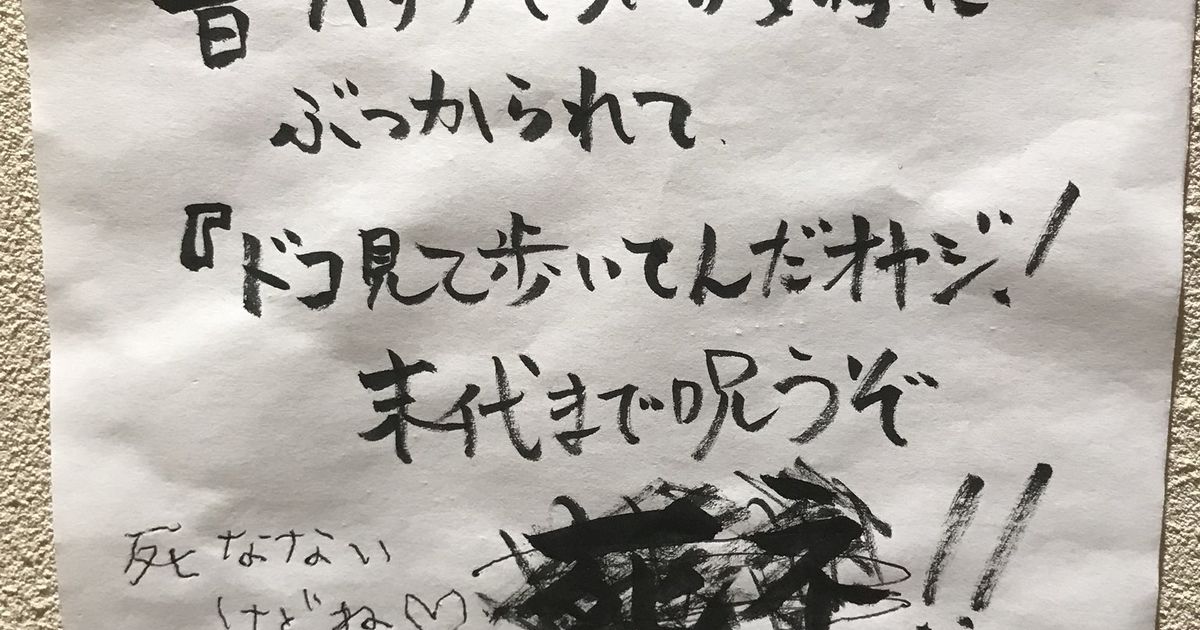 ぶつかられて、
『ドコ見て歩いてんだオヤジ!
末代まで呪うぞ
死ネ!!
死なない
けどね♡